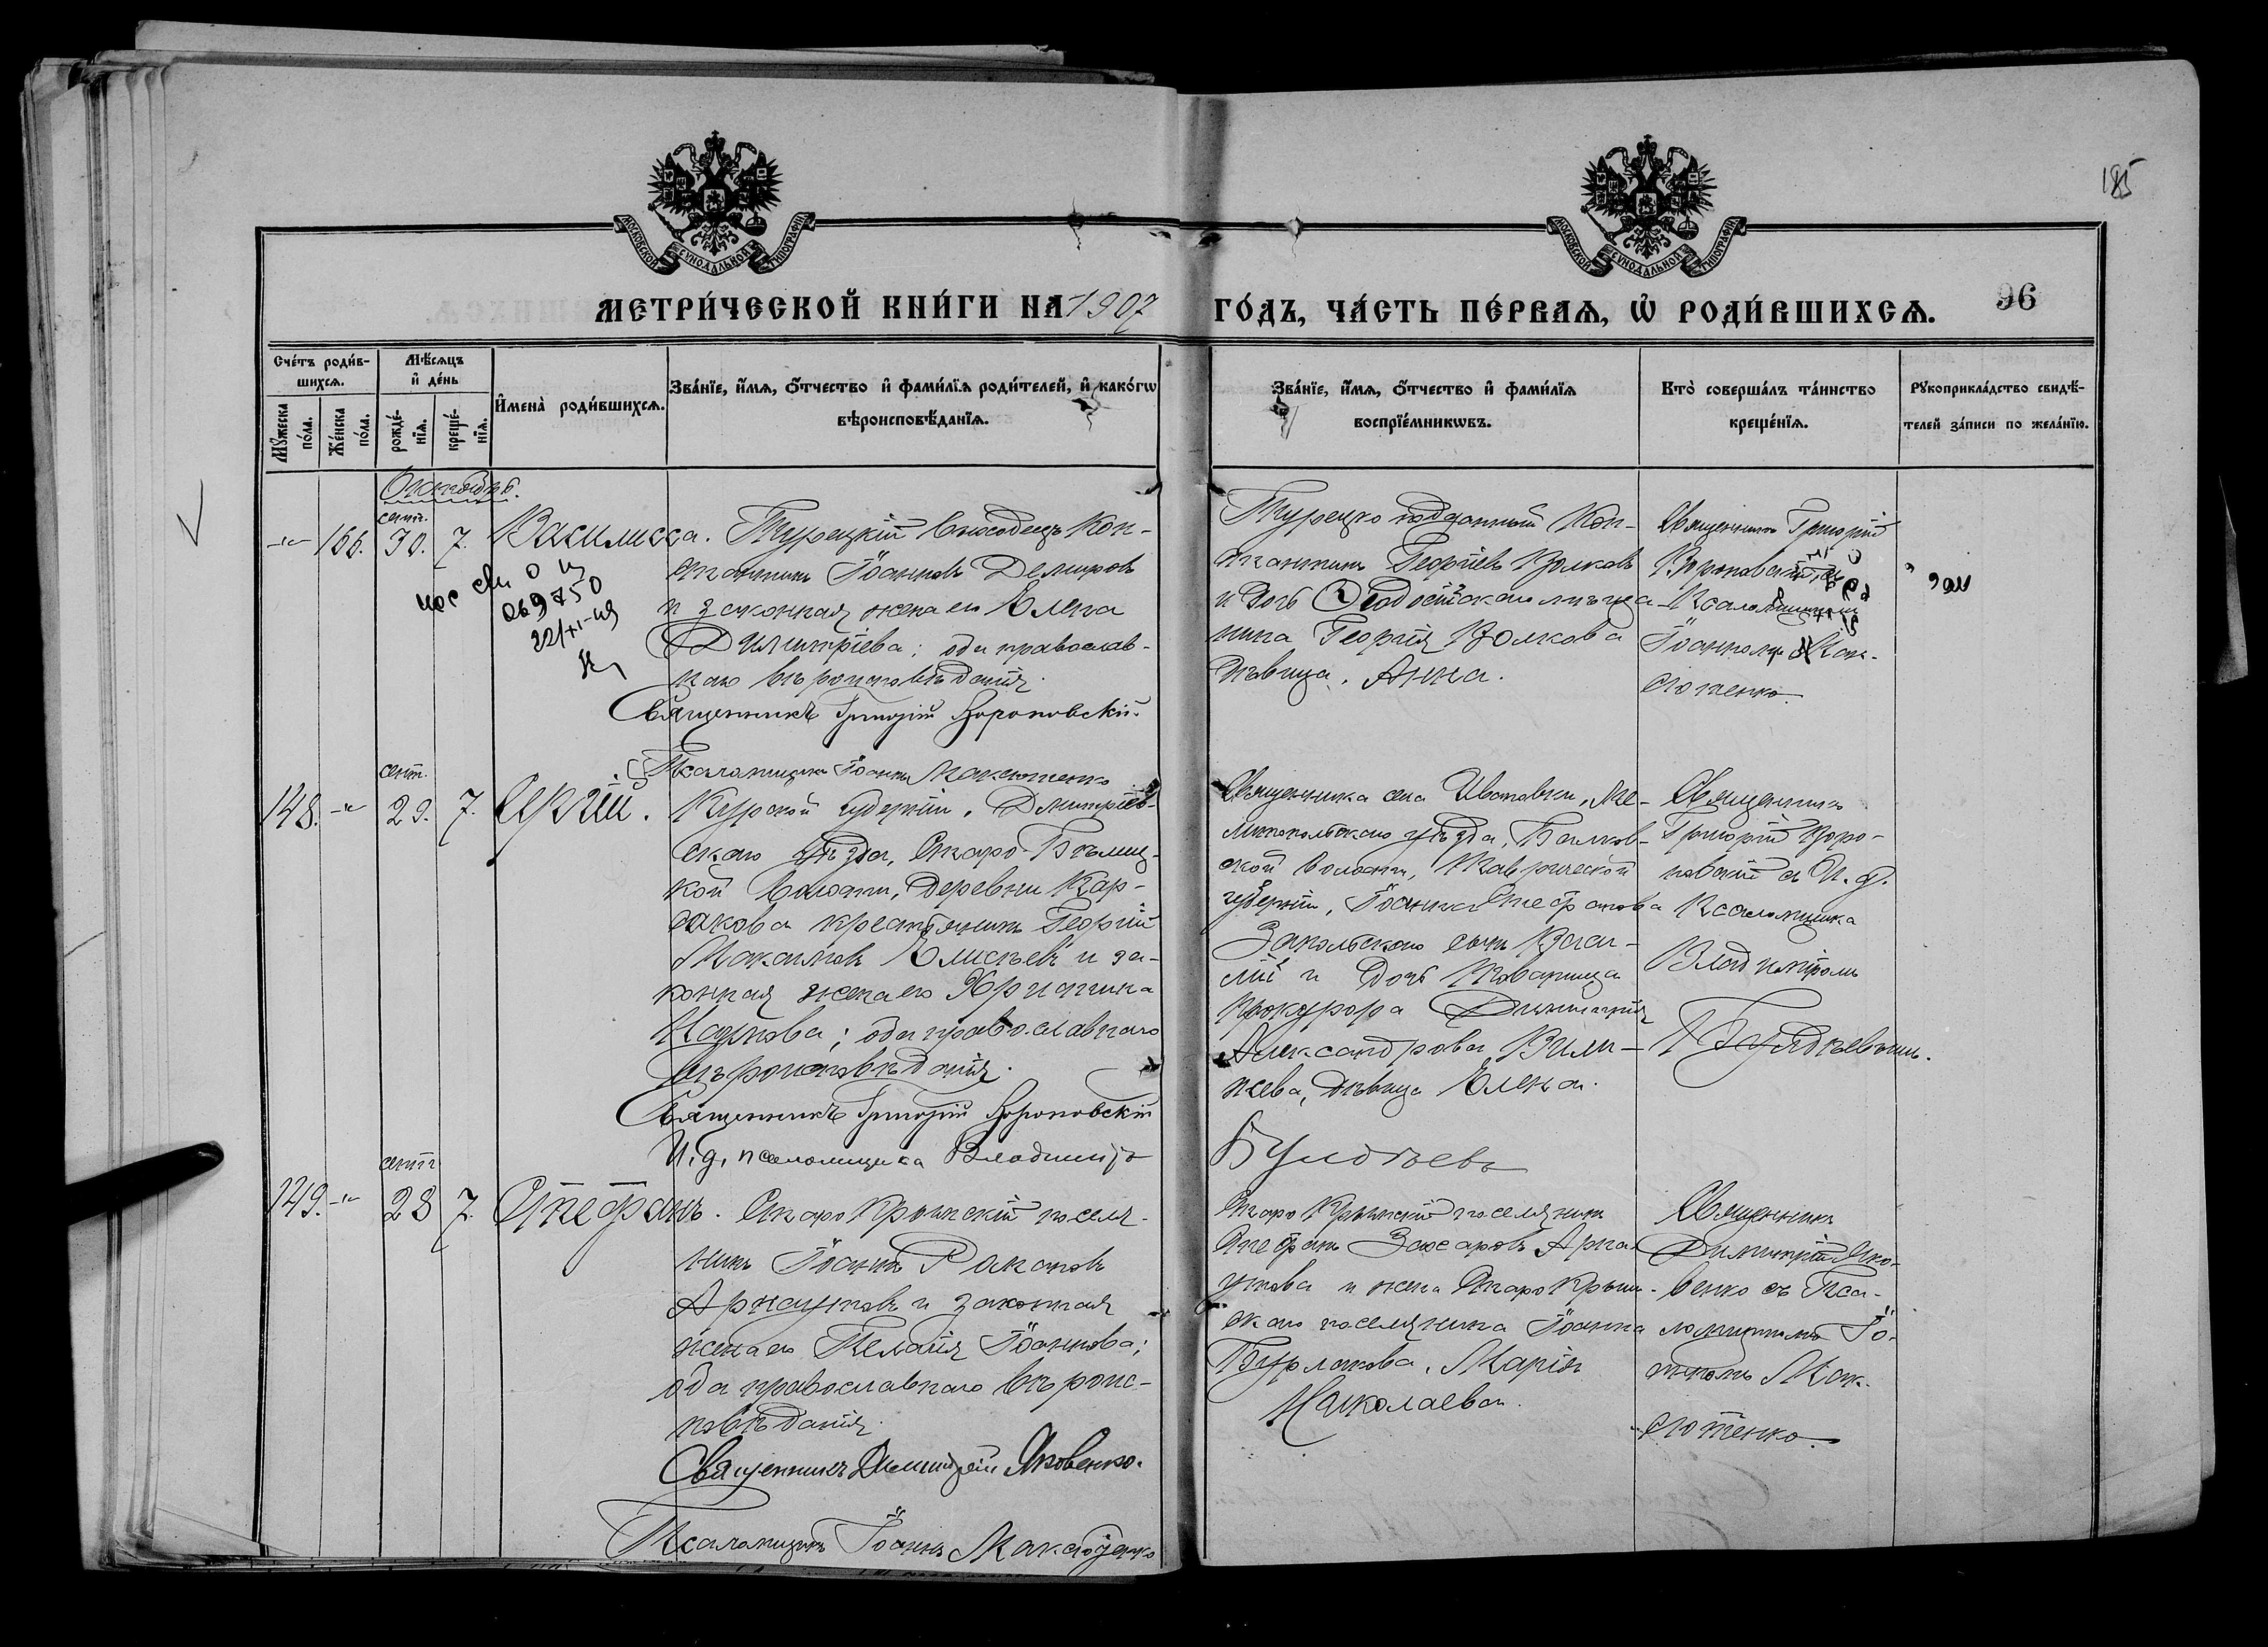 185
МОСКОВСКОЙ СѴНОДАЛЬНОЙ ТИПОГРАФІИ
МОСКОВСКОЙ СѴНОДАЛЬНОЙ ТИПОГРАФІИ
МЕТРИ́ЧЕСКОЙ КНИ́ГИ НА 1907 ГО́ДЪ, ЧА́СТЬ ПЕ́РВАѦ, Ѽ РОДИ́ВШИХСѦ. 96
Сче́тъ роди́в-
шихсѧ.
Мꙋ́жеска
по́ла.
Же́нска
по́ла.
Мѣ́сѧцъ
и҆ де́нь
рожде́-
нїѧ.
креще́-
нїѧ.
И҆мена̀ роди́вшихсѧ.
Зва́нїе, и҆́мѧ, ѻ҆́тчество и҆ фами́лїѧ роди́телей, и҆ како́гѡ
вѣроисповѣ́данїѧ.
Зва́нїе, и҆́мѧ, ѻ҆́тчество и҆ фами́лїѧ
воспрїе́мникѡвъ.
Кто̀ соверша́лъ та́инство
креще́нїѧ.
Рꙋкоприкла́дство свидѣ́-
телей за́писи по жела́нїю.
Октябрь.
сент.
-"- 166. 30. 7. Василисса.
069750
22/XI-49
Турецкій выходецъ Кон-
стантинъ Іоанновъ Демиров
и законная жена его Елена
Димитріева; оба православ-
наго вѣроисповѣданія.
Священникъ Григорій Вороновскій.
Псаломщикъ Іоаннъ Максютенко
Турецко подданный Кон-
стантинъ Георгіевъ Волковъ
и дочь Ѳеодосійскаго мѣща-
нина Георгія Волкова
дѣвица, Анна.
Священникъ Григорій
Вороновскій съ
Псаломщикомъ
Іоанномъ Мак-
сютенко.
сент.
148. -"- 29. 7. Сергій.
Курской губерніи, Дмитріев-
скаго уѣзда, Старо-Бѣлиц-
кой волости, деревни Кар-
сакова крестьянинъ Георгій
Максимовъ Елисѣевъ и за-
конная жена его Христина
Наумова; оба православнаго
вѣроисповѣданія.
Священникъ Григорій Вороновскій
И. д. псаломщика Владиміръ
Булдѣевъ
Священника села Ивановки, Ме-
литопольскаго уѣзда, Балков-
ской волости, Таврической
губерніи, Іоанна Стефанова
Запольскаго сынъ Васи-
лій и дочь Товарища
Прокурора Димитрія
Александрова Вили-
неева, дѣвица Елена.
Священникъ
Григорій Воро-
новскій съ И. д.
Псаломщика
Владиміромъ
Булдѣевымъ.
сент
149. -"- 28 7. Стефанъ.
Старо Крымскій поселя-
нинъ Іоаннъ
Арнаутовъ и законная
жена его Пелагія Іоаннова;
оба православнаго вѣроис-
повѣданія.
Священникъ Димитрій Яковенко.
Псаломщикъ Іоаннъ Максютенко
Старо Крымскій поселянинъ
Стефанъ Захаровъ Арна-
утовъ и жена Старо Крым-
скаго поселянина Іоанна
Бурлакова, Марія
Николаева.
Священникъ
Димитрій Яко-
венко съ Пса-
ломщикомъ Іо-
анномъ Мак-
сютенко.